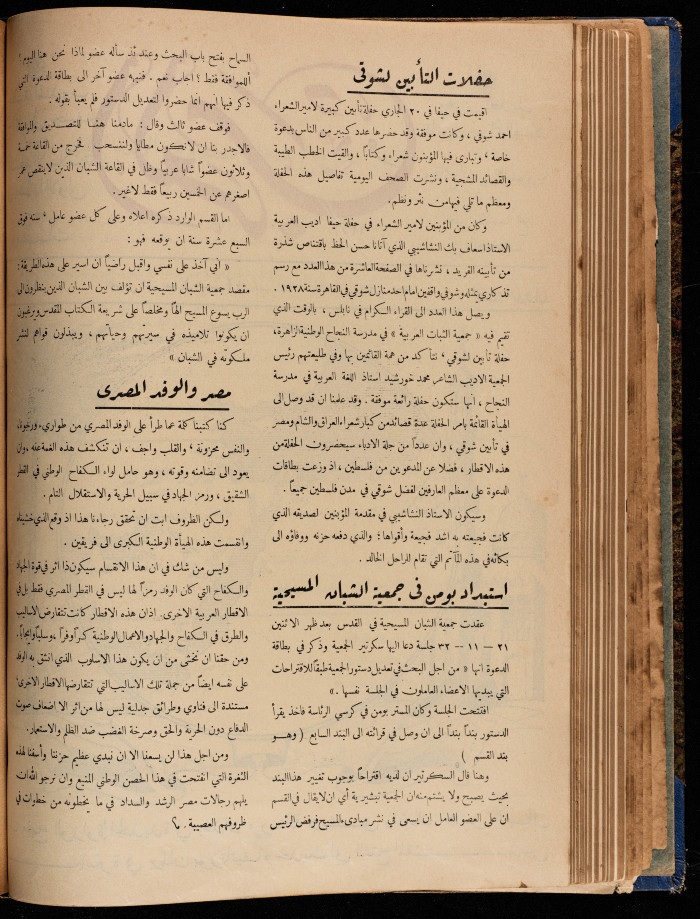 حفلات التأبين لشوقي
اقيمت في حيفا في ٣٠ الجاري حفلة تأبين كبيرة لامير الشعراء
احمد شوقي ، وكانت موفقة وقد حضرها عدد كبير من الناس بدعوة
خاصة ، وتبارى فيها المؤبنون شعراء وكتاباً ، والقيت الخطب الطيبة
والقصائد المشجية ، ونشرت الصحف اليومية تفاصيل هذه الحفلة
ومعظم ما تلي فيها من نثر ونظم .
وكان من المؤبنين لامير الشعراء في حفلة حيفا اديب العربية
الاستاذ اسعاف بك النشاشيبي الذي آتانا حسن الحظ باقتناص شذرة
من تأبينه الفريد ، نشرناها في الصفحة العاشرة من هذا العدد مع رسم
تذكاري يمثله وشوقي واقفين امام احد منازل شوقي في القاهرة سنة ١٩٢٨ .
ويصل هذا العدد الى القراء الكرام في نابلس ، بالوقت الذي
تقيم فيه « جمعية الثبات العربية » في مدرسة النجاح الوطنية الزاهرة ،
حفلة تأبين لشوقي ، نتأكد من همة القائمين بها وفي طليعتهم رئيس
الجمعية الاديب الشاعر محمد خورشيد استاذ اللغة العربية في مدرسة
النجاح ، انها ستكون حفلة رائعة موفقة . وقد علمنا ان قد وصل الى
الهيأة القائمة بامر الحفلة عدة قصائد من كبار شعراء العراق والشام ومصر
في تأبين شوقي ، وان عدداً من جلة الادباء سيحضرون الحفلة من
هذه الاقطار ، فضلا عن المدعوين من فلسطين ، اذ وزعت بطاقات
الدعوة على معظم العارفين لفضل شوقي في مدن فلسطين جميعاً .
وسيكون الاستاذ النشاشيبي في مقدمة المؤبنين لصديقه الذي
كانت فجيعته به اشد فجيعة وأقواها ؛ والذي دفعه حزنه ووفاؤه الى
بكائه في هذه المآتم التي تقام للراحل الخالد .
استبداد بومن في جمعية الشبان المسيحية
عقدت جمعية الشبان المسيحية في القدس بعد ظهر الاثنين
٢١ — ١١ — ٣٢ جلسة دعا اليها سكرتير الجمعية وذكر في بطاقة
الدعوة انها « من اجل البحث في تعديل دستور الجمعية طبقاً للاقتراحات
التي يبديها الاعضاء العاملون في الجلسة نفسها . »
افتتحت الجلسة وكان المستر بومن في كرسي الرئاسة فاخذ يقرأ
الدستور بنداً بنداً الى ان وصل في قرائته الى البند السابع ( وهو
بند القسم )
وهنا قال السكرتير ان لديه اقتراحاً بوجوب تغيير هذا البند
بحيث يصبح ولا يشتم منه ان الجمعية تبشيرية أي ان لا يقال في القسم
ان على العضو العامل ان يسعى في نشر مبادىء المسيح فرفض الرئيس
السماح بفتح باب البحث وعندئذ سأله عضو لماذا نحن هنا اليوم ؟
أللموافقة فقط ؟ اجاب نعم . فنبهه عضو آخر الى بطاقة الدعوة التي
ذكر فيها انهم انما حضروا لتعديل الدستور فلم يعبأ بقوله .
فوقف عضو ثالث وقال : مادمنا هنا للتصديق والموافقة
فالاجدر بنا ان لا نكون مطايا ولننسحب . فخرج من القاعة خمسة
وثلاثون عضواً شابا عربياً وظل في القاعة الشبان الذين لا ينقص عمر
اصغرهم عن الخمسين ربيعاً فقط لاغير .
اما القسم الوارد ذكره اعلاه وعلى كل عضو عامل ، سنه فوق
السبع عشرة سنة ان يوقعه فهو :
« اني آخذ على نفسي واقبل راضياً ان اسير على هذه الطريقة :
مقصد جمعية الشبان المسيحية ان تؤلف بين الشبان الذين ينظرون الى
الرب يسوع المسيح الهاً ومخلصاً على شريعة الكتاب المقدس ويرغبون
ان يكونوا تلاميذه في سيرتهم وحياتهم ، ويبذلون قواهم لنشر
ملكوته في الشبان »
مصر والوفد المصري
كنا كتبنا كلمة عما طرأ على الوفد المصري من طواري ، ورجونا ،
والنفس محزونة ، والقلب واجف ، ان تنكشف هذه الغمة عنه ، وان
يعود الى تضامنه وقوته ، وهو حامل لواء الكفاح الوطني في القطر
الشقيق ، ورمز الجهاد في سبيل الحرية والاستقلال التام .
ولكن الظروف ابت ان تحقق رجاءنا هذا اذ وقع الذي خشيناه
وانقسمت هذه الهيأة الوطنية الكبرى الى فريقين .
وليس من شك في ان هذا الانقسام سيكون ذا اثر في قوة الجهاد
والكفاح التي كان الوفد رمزاً لها ليس في القطر المصري فقط بل في
الاقطار العربية الاخرى . اذ ان هذه الاقطار كانت تتقارض الاساليب
والطرق في الكفاح والجهاد والاعمال الوطنية كراً وفراً ، وسلباً وايجاباً .
ومن حقنا ان نخشى من ان يكون هذا الاسلوب الذي انشق به الوفد
على نفسه ايضاً من جملة تلك الاساليب التي تتقارضها الاقطار الاخرى ،
مستندة الى فتاوي وطرائق جدلية ليس لها من اثر الا اضعاف صوت
الدفاع دون الحرية والحق وصرخة الغضب ضد الظلم والاستعمار .
ومن اجل هذا لن يسعنا الا ان نبدي عظيم حزننا وأسفنا لهذه
الثغرة التي انفتحت في هذا الحصن الوطني المنيع وان نرجو الله ان
يلهم رجالات مصر الرشد والسداد في ما يخطونه من خطوات في
ظروفهم العصيبة .